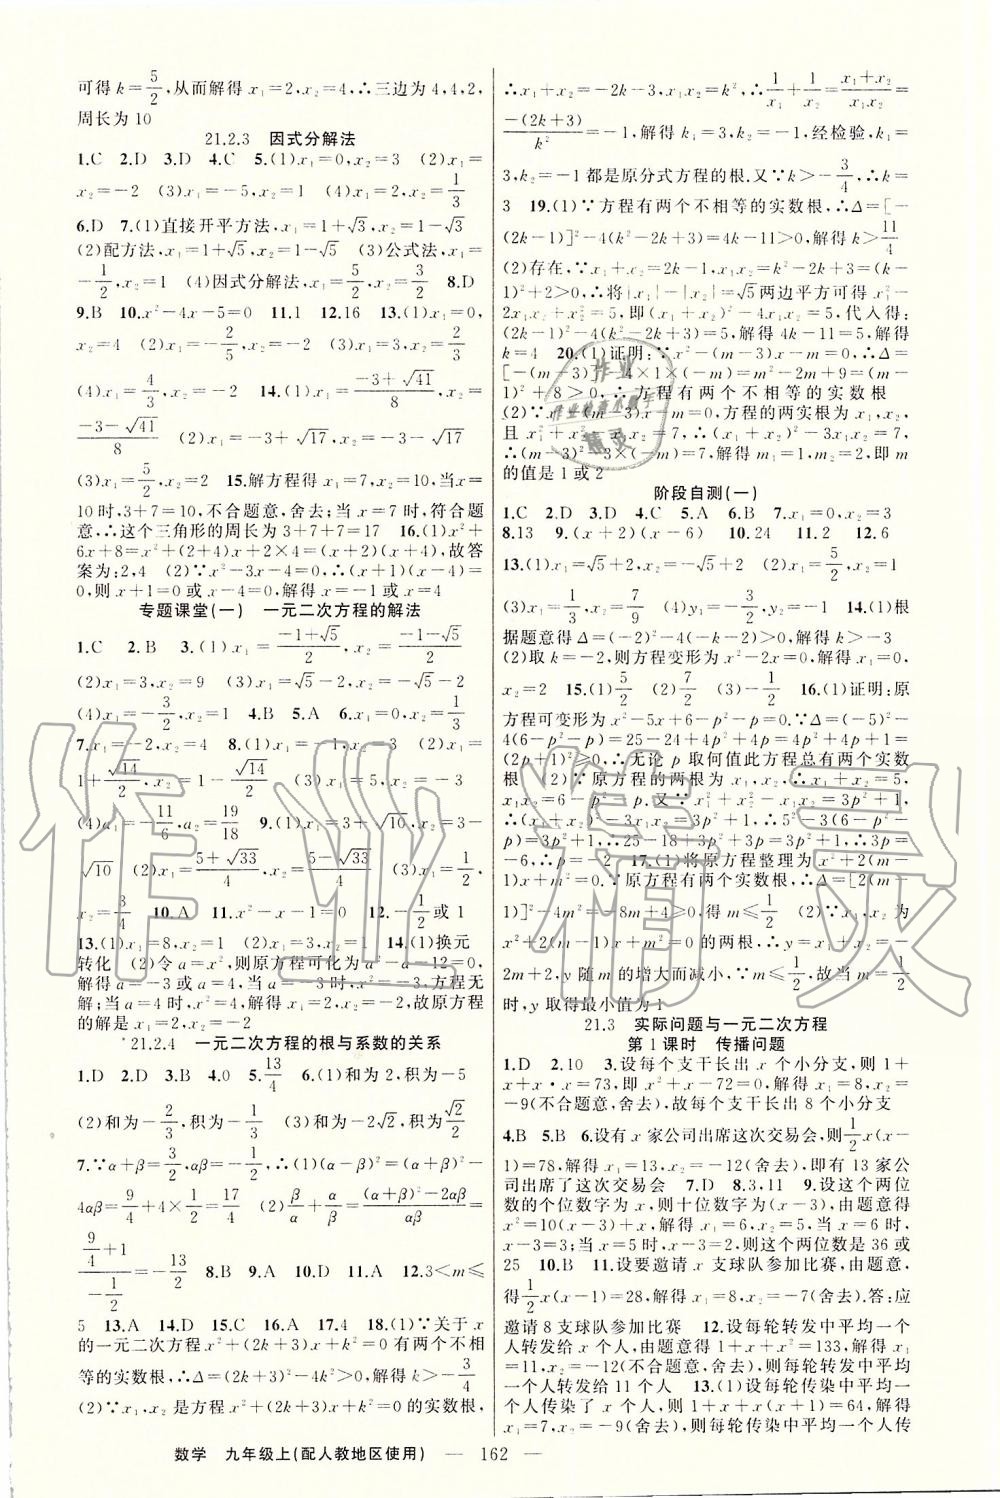 可得k=5/2,从而解得x₁=2,x₂=4,∴三边为4,4,2,
周长为10
21.2.3 因式分解法
1.C 2.D 3.D 4.C 5.(1)x₁=0,x₂=3 (2)x₁=
x₂=-2 (3)x₁=-5,x₂=1 (4)x₁=2,x₂=1/3
6.D 7.(1)直接开平方法,x₁=1+√3,x₂=1-√3
(2)配方法,x₁=1+√5,x₂=1-√5 (3)公式法,x₁=
-1/2,x₂=1 (4)因式分解法,x₁=5/2,x₂=3/2 8.D
9.B 10.x²-4x-5=0 11.1 12.16 13.(1)x₁=0,
x₂=4 (2)x₁=-2/5,x₂=-2 (3)x₁=0,x₂=-2/3
(4)x₁=4/3,x₂=-2 14.(1)x₁=(-3+√41)/8,x₂=
(-3-√41)/8 (2)x₁=-3+√17,x₂=-3-√17
(3)x₁=5/2,x₂=2 15.解方程得x₁=7,x₂=10,当x=
10时,3+7=10,不合题意,舍去;当x=7时,符合题
意,∴这个三角形的周长为3+7+7=17 16.(1)x²+
6x+8=x²+(2+4)x+2×4=(x+2)(x+4),故答
案为:2,4 (2)∵x²-3x-4=0,∴(x+1)(x-4)=
0,则x+1=0或x-4=0,解得x=-1或x=4
专题课堂(一) 一元二次方程的解法
1.C 2.B 3.(1)x₁=(-1+√5)/2,x₂=(-1-√5)/2
(2)x₁=3,x₂=9 (3)x₁=√5-2,x₂=-√5-2
(4)x₁=-3/2,x₂=1 4.B 5.A 6.x₁=0,x₂=1/3
7.x₁=-2,x₂=4 8.(1)x₁=0,x₂=4 (2)x₁=
1+√14/2,x₂=1-√14/2 (3)x₁=5,x₂=-3
(4)a₁=-11/6,a₂=19/18 9.(1)x₁=3+√10,x₂=3-
√10 (2)x₁=(5+√33)/4,x₂=(5-√33)/4 (3)x₁=1/2,
x₂=3/4 10.A 11.x²-x-1=0 12.-1/2或1
13.(1)x₁=8,x₂=1 (2)x₁=3,x₂=1 14.(1)换元
转化 (2)令a=x²,则原方程可化为a²-a-12=0,
解得a=-3或a=4,当a=-3时,x²=-3,方程无
解;当a=4时,x²=4,解得x₁=2,x₂=-2,故原方程
的解是x₁=2,x₂=-2
21.2.4 一元二次方程的根与系数的关系
1.D 2.D 3.B 4.0 5.13/4 6.(1)和为2,积为-5
(2)和为-2/3,积为-1/3 (3)和为-2√2,积为√2/2
7.∵α+β=3/2,αβ=-1/2,∴(1)(α-β)²=(α+β)²-
4αβ=9/4+4×1/2=17/4 (2)β/α+α/β=((α+β)²-2αβ)/αβ=
(9/4+1)/(-1/2)=-13/2 8.B 9.A 10.D 11.A 12.3<m≤
5 13.A 14.D 15.C 16.A 17.4 18.(1)∵关于x
的一元二次方程x²+(2k+3)x+k²=0有两个不相
等的实数根,∴Δ=(2k+3)²-4k²>0,解得k>-3/4
(2)∵x₁,x₂是方程x²+(2k+3)x+k²=0的实数根,
∴x₁+x₂=-2k-3,x₁x₂=k²,∴1/x₁+1/x₂=(x₁+x₂)/x₁x₂=
-(2k+3)/k²=-1,解得k₁=3,k₂=-1,经检验,k₁=
3,k₂=-1都是原分式方程的根.又∵k>-3/4,∴k=
3 19.(1)∵方程有两个不相等的实数根,∴Δ=[-
(2k-1)]²-4(k²-2k+3)=4k-11>0,解得k>11/4
(2)存在,∵x₁+x₂=2k-1,x₁x₂=k²-2k+3=(k-
1)²+2>0,∴将|x₁|-|x₂|=√5两边平方可得x₁²-
2x₁x₂+x₂²=5,即(x₁+x₂)²-4x₁x₂=5,代入得:
(2k-1)²-4(k²-2k+3)=5,解得4k-11=5,解得
k=4 20.(1)证明:∵x²-(m-3)x-m=0,∴Δ=
[-(m-3)]²-4×1×(-m)=m²-2m+9=(m-
1)²+8>0,∴方程有两个不相等的实数根
(2)∵x²-(m-3)x-m=0,方程的两实根为x₁,x₂,
且x₁²+x₂²-x₁x₂=7,∴(x₁+x₂)²-3x₁x₂=7,
∴(m-3)²-3×(-m)=7,解得m₁=1,m₂=2,即m
的值是1或2
阶段自测(一)
1.C 2.D 3.D 4.C 5.A 6.B 7.x₁=0,x₂=3
8.13 9.(x+2)(x-6) 10.24 11.2 12.6
13.(1)x₁=√5+2,x₂=-√5+2 (2)x₁=5/2,x₂=1
(3)x₁=1/3,x₂=7/9 (4)y₁=-3/2,y₂=1/2 14.(1)根
据题意得Δ=(-2)²-4(-k-2)>0,解得k>-3
(2)取k=-2,则方程变形为x²-2x=0,解得x₁=0,
x₂=2 15.(1)5/2 (2)7/2 (3)-1/2 16.(1)证明:原
方程可变形为x²-5x+6-p²-p=0.∵Δ=(-5)²-
4(6-p²-p)=25-24+4p²+4p=4p²+4p+1=
(2p+1)²≥0,∴无论p取何值此方程总有两个实数
根 (2)∵原方程的两根为x₁,x₂,∴x₁+x₂=5,
x₁x₂=6-p²-p.又∵x₁²+x₂²-x₁x₂=3p²+1,
∴(x₁+x₂)²-3x₁x₂=3p²+1,∴5²-3(6-p²-p)=
3p²+1,∴25-18+3p²+3p=3p²+1,∴3p=
-6,∴p=-2 17.(1)将原方程整理为x²+2(m-
1)x+m²=0.∵原方程有两个实数根,∴Δ=[2(m-
1)]²-4m²=-8m+4≥0,得m≤1/2 (2)∵x₁,x₂为
x²+2(m-1)x+m²=0的两根,∴y=x₁+x₂=-
2m+2,y随m的增大而减小,∵m≤1/2,故当m=1/2
时,y取得最小值为1
21.3 实际问题与一元二次方程
第1课时 传播问题
1.D 2.10 3.设每个支干长出x个小分支,则1+
x+x·x=73,即x²+x-72=0,解得x₁=8,x₂=
-9(不合题意,舍去),故每个支干长出8个小分支
4.B 5.B 6.设有x家公司出席这次交易会,则1/2x(x-
1)=78,解得x₁=13,x₂=-12(舍去),即有13家公
司出席了这次交易会 7.D 8.3,11 9.设这个两位
数的个位数字为x,则十位数字为(x-3),由题意得
x²=10(x-3)+x,解得x₁=6,x₂=5,当x=6时,
x-3=3;当x=5时,x-3=2,则这个两位数是36或
25 10.B 11.设要邀请x支球队参加比赛,由题意,
得1/2x(x-1)=28,解得x₁=8,x₂=-7(舍去).答:应
邀请8支球队参加比赛 12.设每轮转发中平均一个
人转发给x个人,由题意得1+x+x²=133,解得
x₁=11,x₂=-12(不合题意,舍去),则每轮转发中平均
一个人转发给11个人 13.(1)设每轮传染中平均一
个人传染x个人,则1+x+x(x+1)=64,解得
x₁=7,x₂=-9(舍去),则每轮传染中平均一个人传
数学 九年级上(配人教地区使用) — 162 —
作业精灵